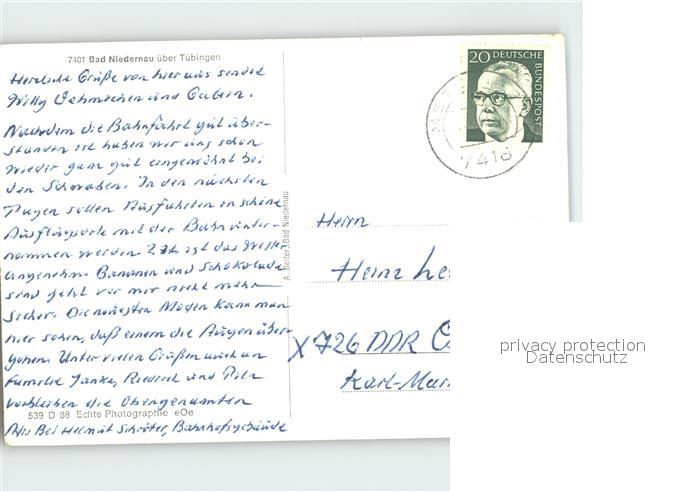 7401 Bad Niedernau über Tübingen
Herzliche Grüße von hier aus sendet
Willy Oehmichen und
Nachdem die Bahnfahrt gut über-
standen ist haben wir uns schon
wieder ganz gut eingewöhnt bei
den Schwaben. In den nächsten
Tagen sollen Ausfahrten in schöne
Ausflugsorte mit der Bahn unter-
nommen werden z.Zt. ist das Wetter
angenehm Bananen und Schokolade
sind jetzt vor mir nicht mehr
sicher. Die neuesten Moden kann man
hier sehen, daß einem die Augen über-
gehen. Unter vielen Grüßen auch an
Familie und
verbleiben die Obengenannten
539 D 88 Echte Photographie eOe
Bei Helmut Schröter, Bahnhofsgebäude
A. Beiter, Bad Niedernau
20 DEUTSCHE BUNDESPOST
MET
7418
Herrn
Heinz
X 726 DDR
Karl-Mar
privacy protection
Datenschutz